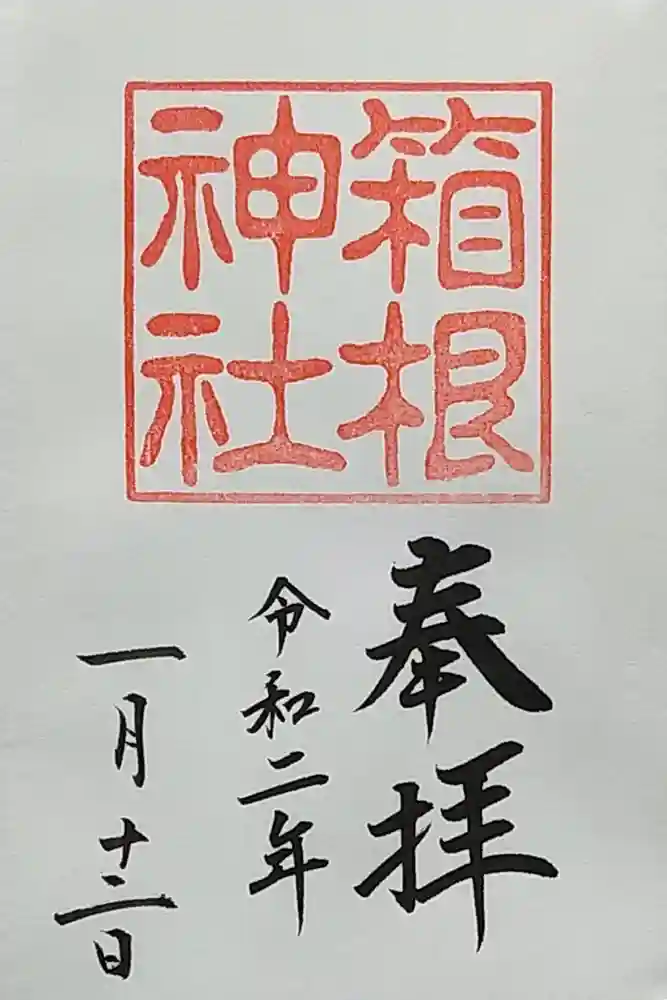 箱根
神社
奉拝
令和二年
一月十二日